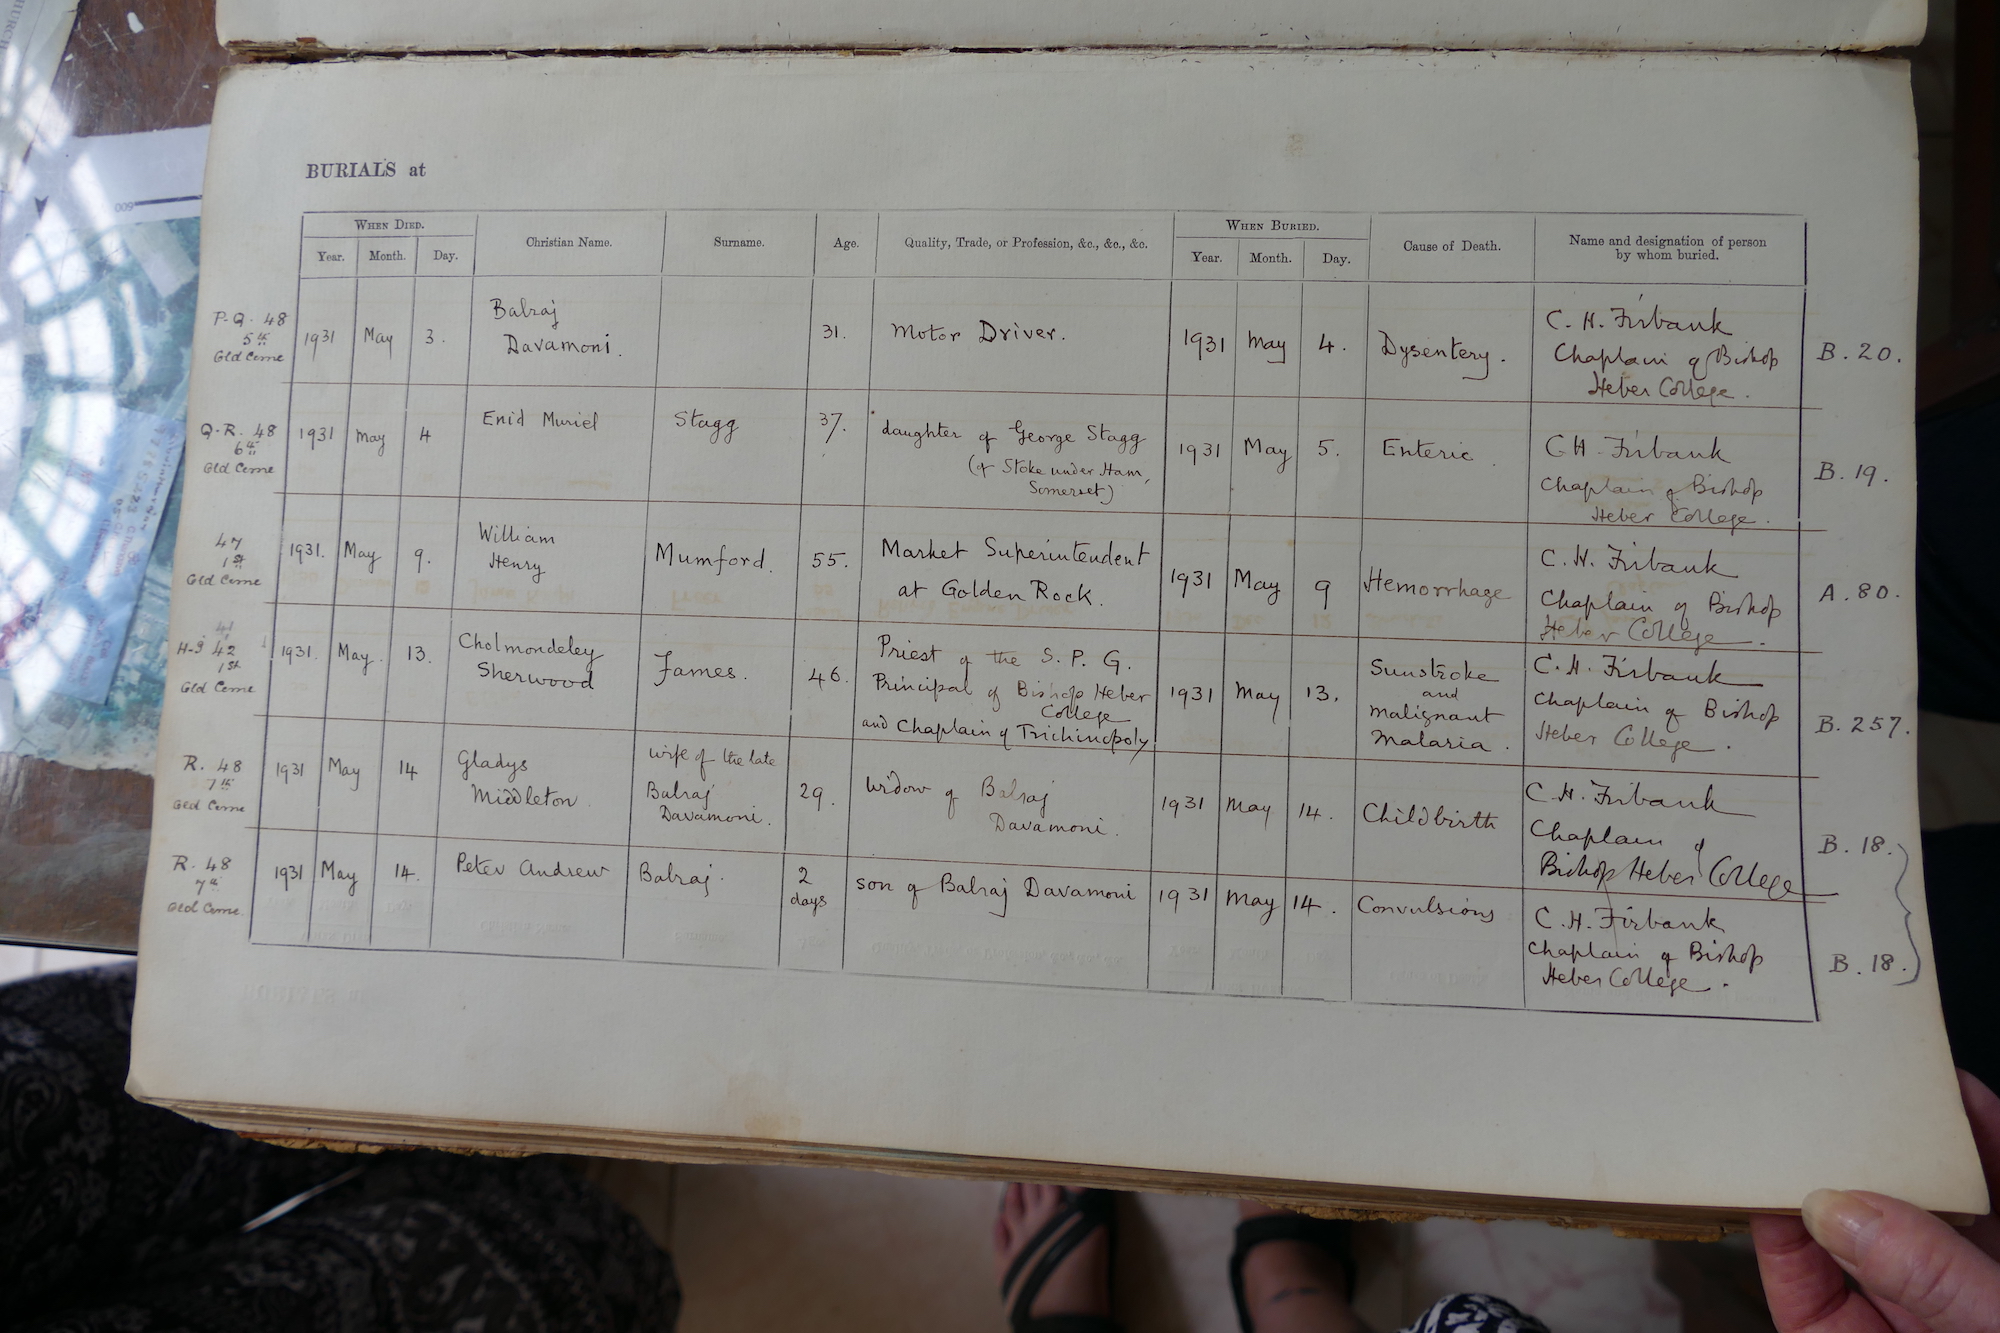 BURIALS at
WHEN DIED.
Year. Month. Day.
Christian Name.
Surname.
Age.
Quality, Trade, or Profession, &c., &c., &c.
WHEN BURIED.
Year. Month. Day.
Cause of Death.
Name and designation of person
by whom buried.
P-Q. 48
5th
Old Ceme
1931 May 3.
Balraj
Davamoni.
31.
Motor Driver.
1931 May 4.
Dysentery.
C. H. Firbank
Chaplain of Bishop
Heber College.
B. 20.
Q-R. 48
6th
Old Ceme
1931 May 4
Enid Muriel
Stagg
37.
daughter of George Stagg
(of Stoke under Ham,
Somerset)
1931 May 5.
Enteric.
C H. Firbank
Chaplain of Bishop
Heber College.
B. 19.
47
1st
Old Ceme
1931. May 9.
William
Henry
Mumford.
55.
Market Superintendent
at Golden Rock.
1931 May 9
Hemorrhage
C. H. Firbank
Chaplain of Bishop
Heber College.
A. 80.
41
42
1st
Old Ceme
1931. May. 13.
Cholmondeley
Sherwood
James.
46.
Priest of the S. P. G.
Principal of Bishop Heber
College
and Chaplain of Trichinopoly
1931 May 13.
Sunstroke
and
Malignant
Malaria.
C. H. Firbank
Chaplain of Bishop
Heber College.
B. 257.
R. 48
7th
Old Ceme
1931 May 14
Gladys
Middleton.
wife of the late
Balraj
Davamoni.
29.
Widow of Balraj
Davamoni.
1931 May 14.
Childbirth
C. H. Firbank
Chaplain of
Bishop Heber College
B. 18.
R. 48
7th
Old Ceme.
1931 May 14.
Peter Andrew
Balraj.
2
days
son of Balraj Davamoni
1931 May 14.
Convulsions
C. H. Firbank
Chaplain of Bishop
Heber College.
B. 18.
600